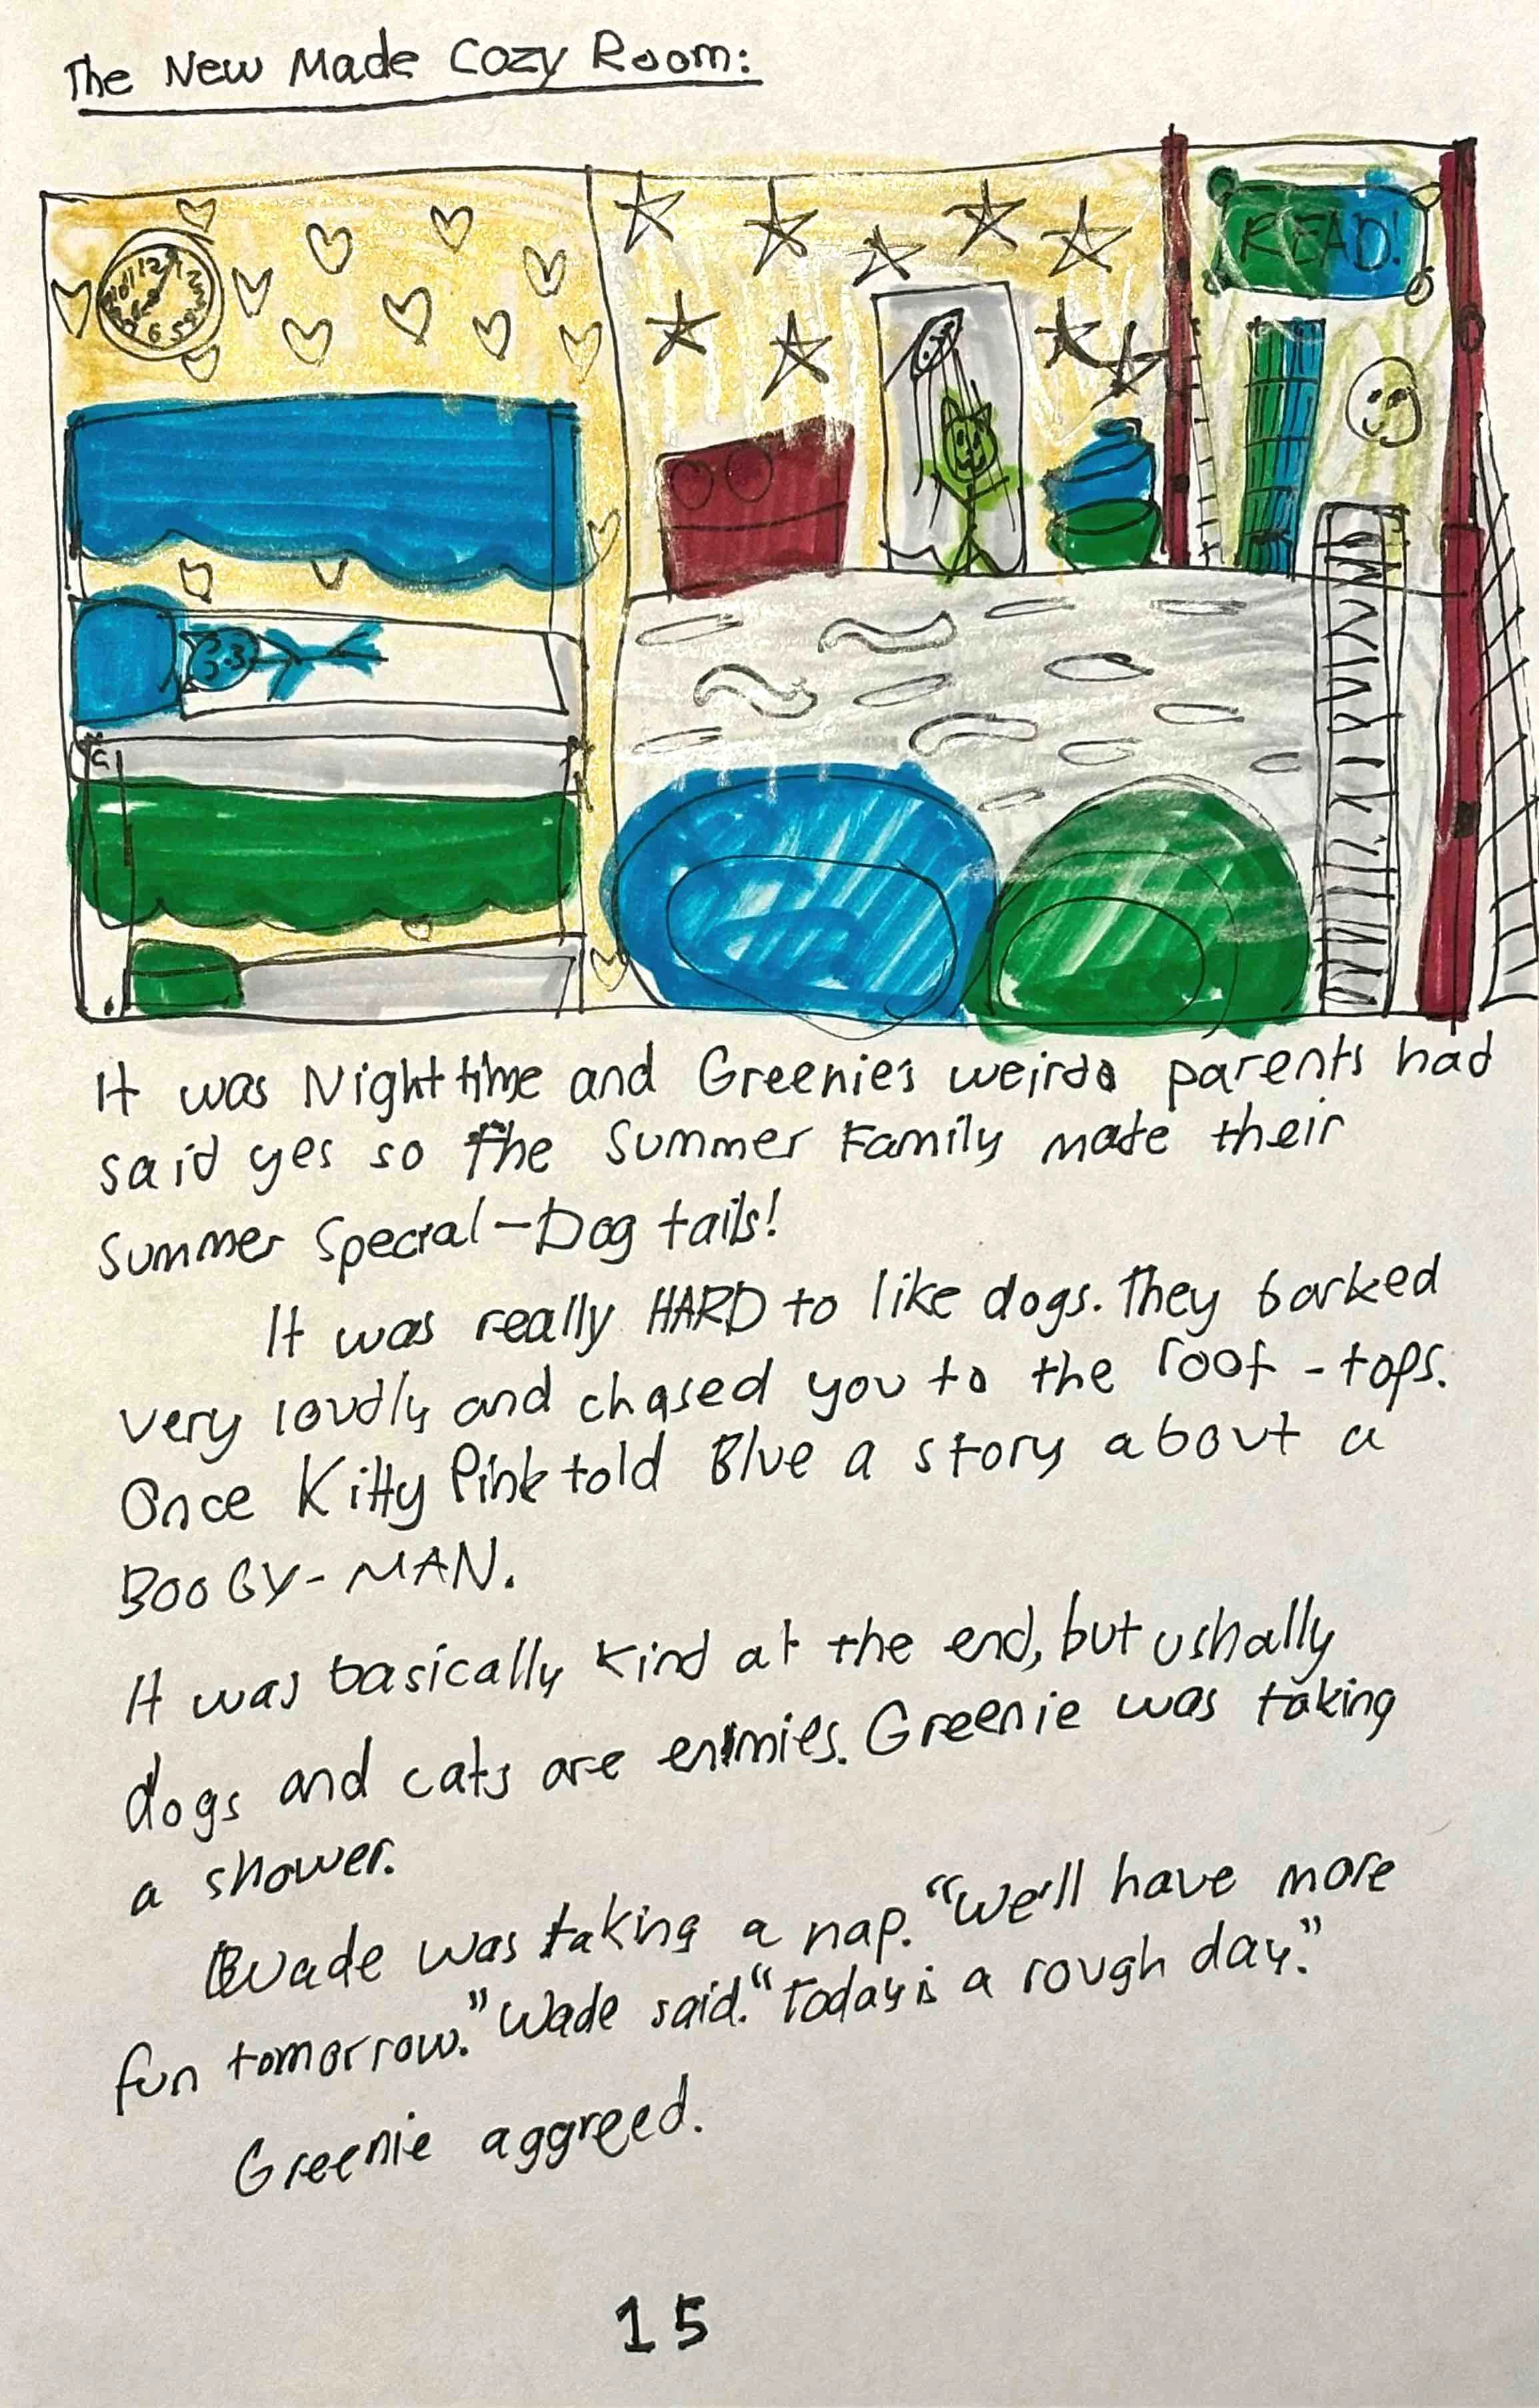 The New Made Cozy Room:
READ!
It was Night time and Greenie's weirdo parents had
said yes so the Summer Family made their
Summer Special-Dog tails!
It was really HARD to like dogs. They barked
very loudly and chased you to the roof-tops.
Once Kitty Pink told Blue a story about a
BOOGY-MAN.
It was basically kind at the end, but ushally
dogs and cats are enimies. Greenie was taking
a shower.
Wade was taking a nap. "We'll have more
fun tomorrow." Wade said. "Today is a rough day."
Greenie aggreed.
15